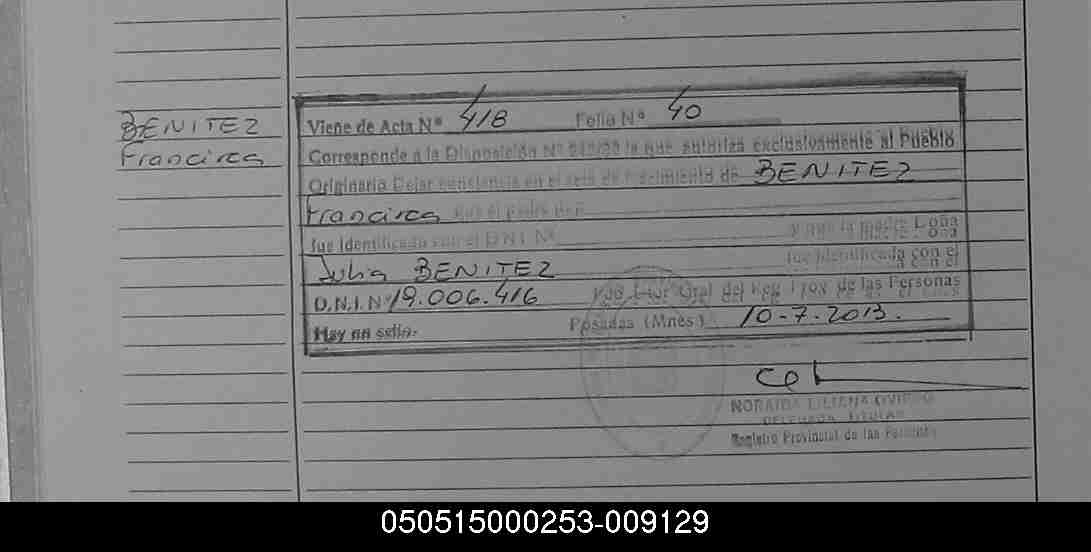 BENITEZ
Francisca
Viene de Acta Nº 418 Folio Nº 40
Corresponde a la Disposición Nº la que autoriza exclusivamente al Pueblo
Originario Dejar constancia en el acta de nacimiento de BENITEZ
Francisca que el padre don
fue Identificado con el D.N.I. Nº y que la madre Doña
Julia BENITEZ fue Identificada con el
D.N.I. Nº 19.006.416 Gral del Reg Prov. de las Personas
Hay un sello. Posadas (Mnes) 10-7-2013.
NORAIDA LILIANA OVIEDO
DELEGADA TITULAR
Registro Provincial de las Personas
050515000253-009129